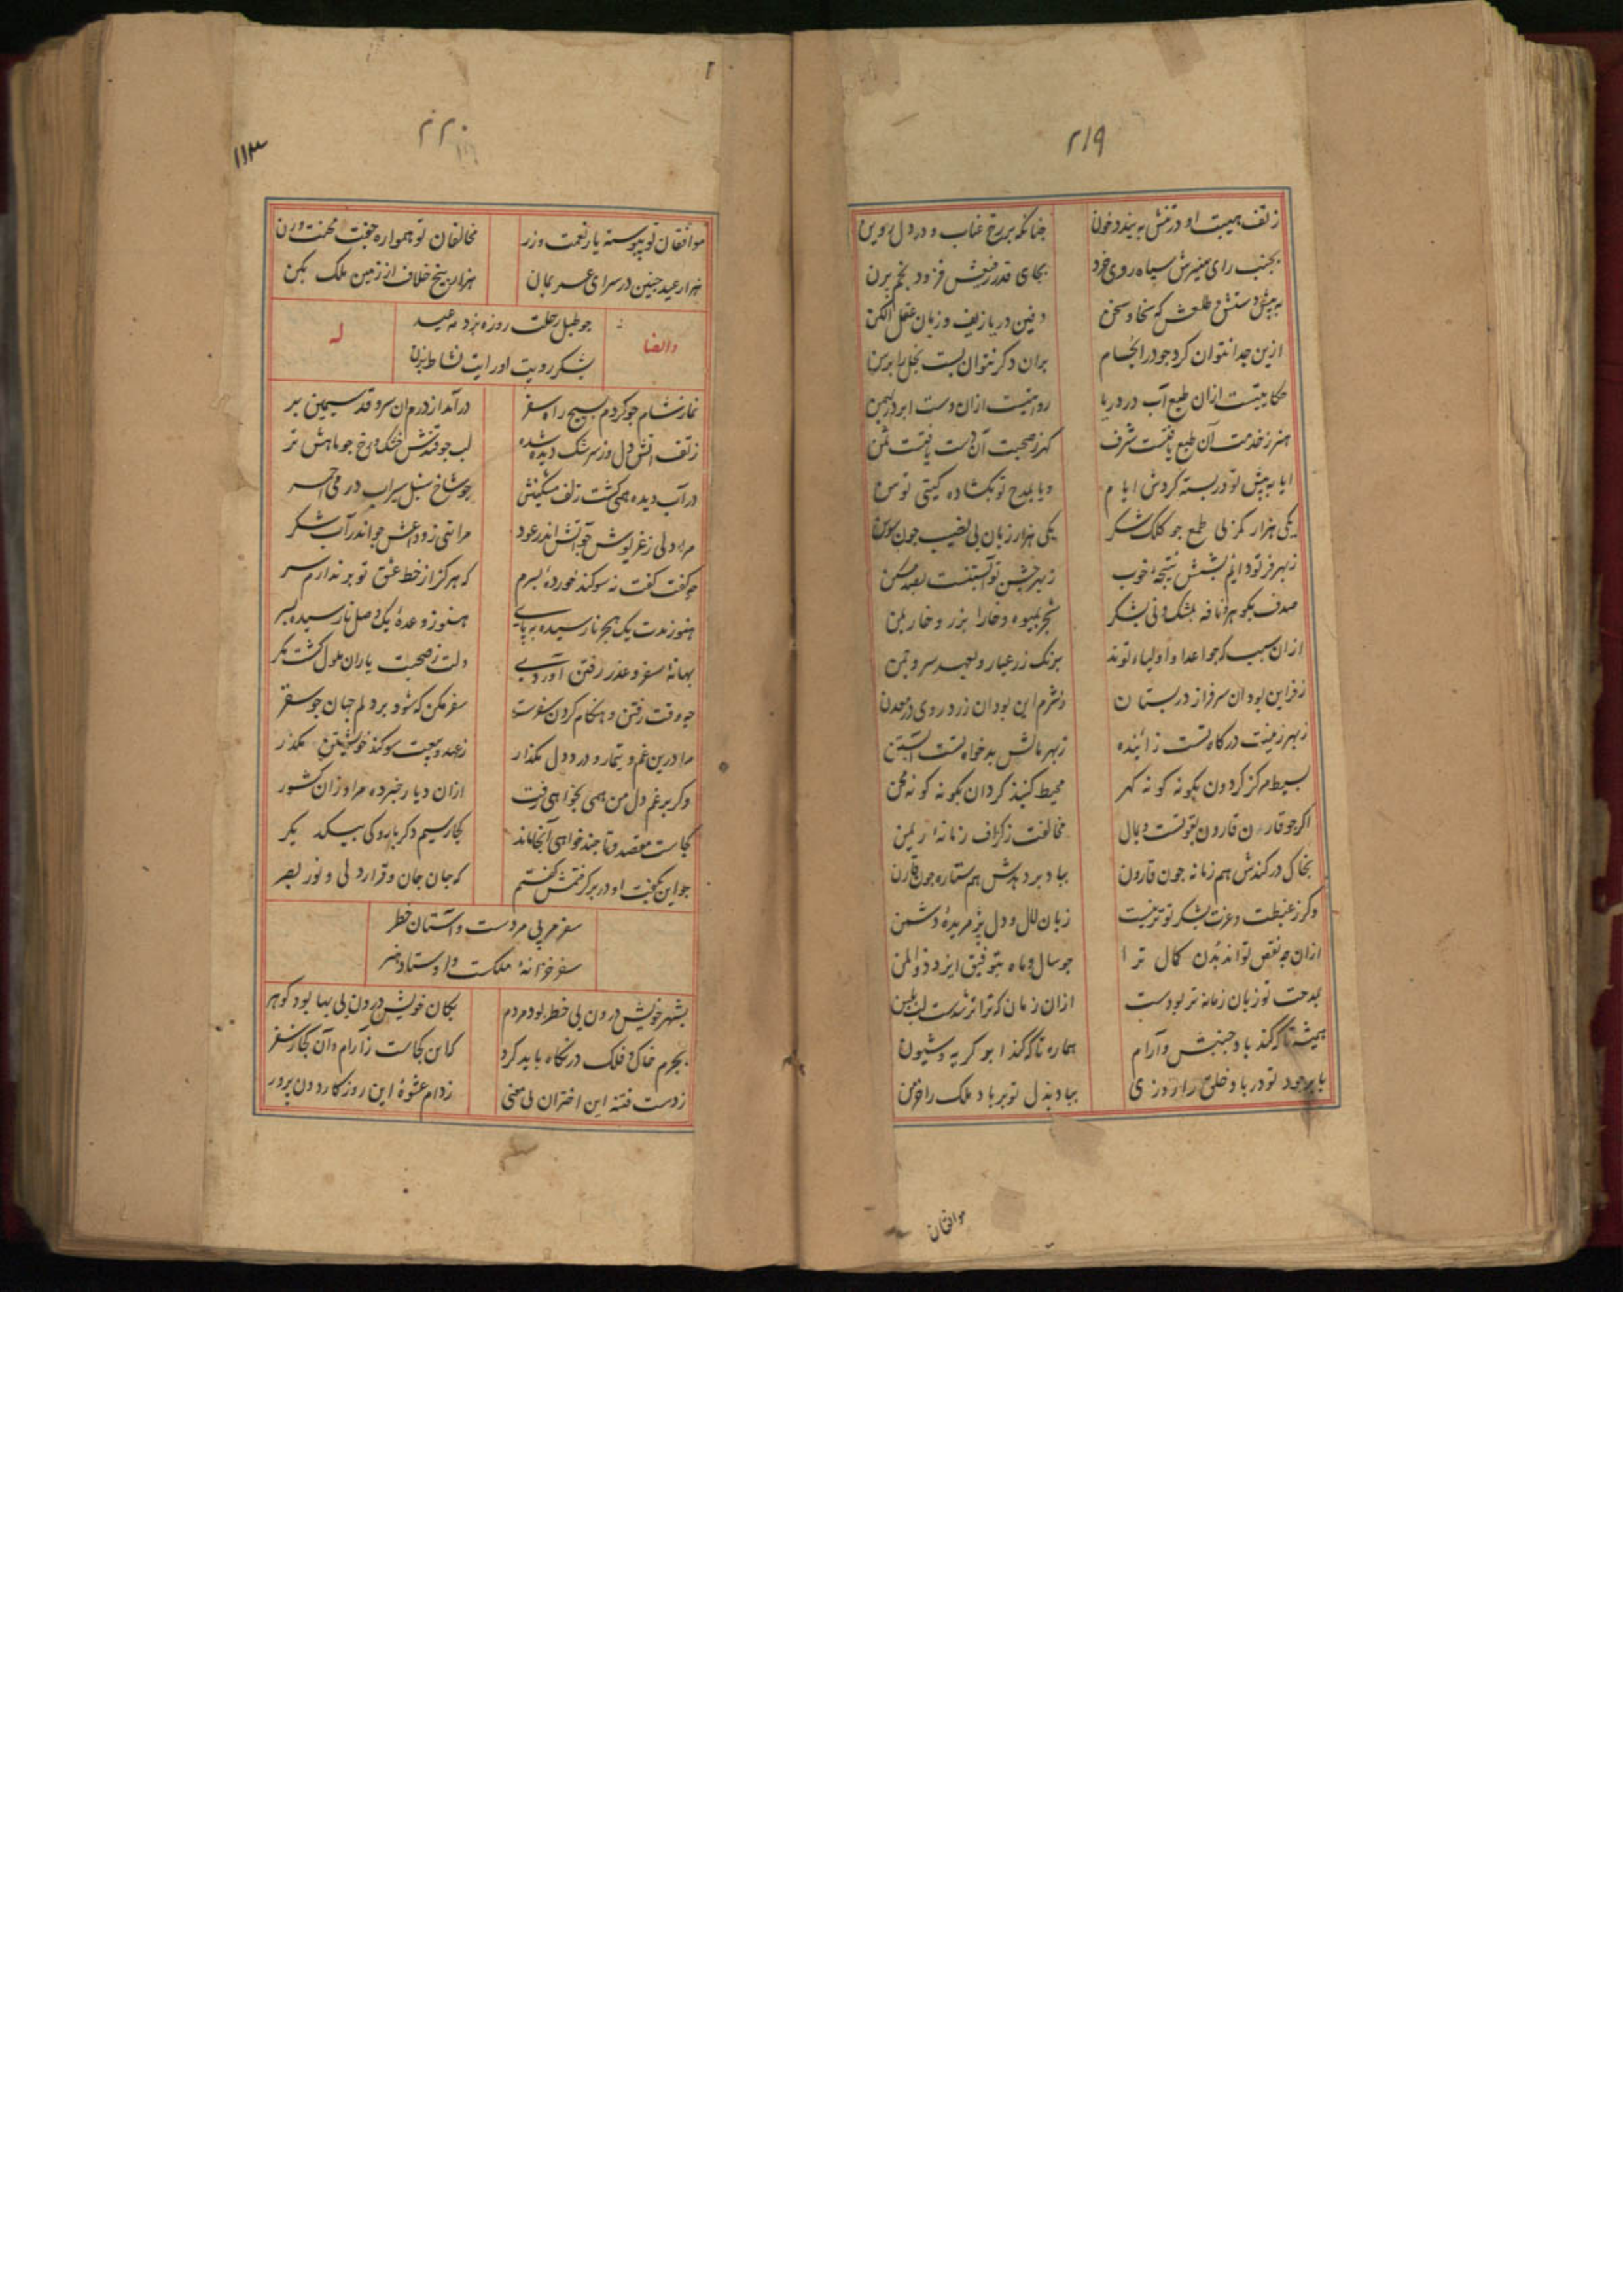 ۲۱۹
ز تف هیبت او در تنش ببندد خون
چنانکه بر رخ عناب و در دل روین
بجنب رای منیرش سیاه روی خرد
بجای قدر رفیعش فرود نجم پرن
به پیش دستش و طبعش که سخا و سخن
دفین دریا زیف و زبان عقل الکن
ازین جدا نتوان کرد جود را نجسام
بران دگر نتوان بست بخل را برسن
حکایتیست ازان طبع آب در دریا
روایتیست ازان دست ابر در بهمن
هنر ز خدمت آن طبع یافتست شرف
گهر ز صحبت آن دست یافتست ثمن
ایا به پیش تو در بسته گردش ایام
ویا بمدح تو بگشاده گیتی توسن
یکی هزار کمر بی طمع چو کلک شکر
یکی هزار زبان بی نصیب چون سوسن
صدف بگوهر و نافه بمشک و نی بشکر
شجر بمیوه و خارا بزر و خار بمن
ازان سبب که چو اعدا و اولیاء تواند
برنگ زر عیار و بعهد سرو چمن
ز فر این بود آن سرفراز در بستان
ز شرم این بود آن زرد روی در معدن
ز بهر زینت درگاه تست زاینده
ز بهر مالش بدخواه تست آبستن
بسیط مرکز گردون بگونه گونه گهر
محیط گنبد گردان بگونه گونه محن
بخاک درکندش هم زمانه چون قارون
بباد بردهدش هم ستاره چون قارن
زبان لال و دل پژمریده دشمن
ازان چه نقص تواند بدن کمال ترا
چو سال و ماه بتوفیق ایزد ذوالمن
بمدحت تو زبان زمانه تر بودست
ازان زمان که ترا تر شدست لب بلبن
همیشه تا که کند باد جنبش و آرام
هماره تا که کند ابر گریه و شیون
با بر جود تو در باد خلق را روزی
بباد بذل تو بر باد ملک را خرمن
موافقان
۲۲۰
۱۱۳
موافقان تو پیوسته یار نعمت و زر
مخالفان تو همواره جفت محنت و رن
هزار عید چنین در سرای عمر بمان
هزار بیخ خلاف از زمین ملک بکن
وایضا
چو طبل رحلت روزه بزد مه عید
له
بشکر رویت او رایت نشاط بزن
نماز شام چو کردم بسیج راه سفر
درآمد از درم آن سرو قد سیمین بر
ز تف آتش دل وز سرشک دیده شده
لب چو قندش خشک و رخ چو ماهش تر
در آب دیده همی گشت زلف مشکینش
چو شاخ سنبل سیراب در می احمر
مرا دلی ز غریوش چو آتش اندر عود
مرا تنی ز وداعش چو اندر آب شکر
چه گفت گفت نه سوگند خورده بسرم
که هرگز از خط عشق تو بر ندارم سر
هنوز مدت یک هجر نارسیده به پای
هنوز وعده یک وصل نارسیده بسر
بهانه سفر و عذر رفتن آوردی
دلت ز صحبت یاران ملول گشت مگر
چه وقت رفتن و هنگام کردن سفرست
سفر مکن که شود بر دلم جهان چو سقر
مرا درین غم و تیمار و درد دل مگذار
ز عهد و بیعت و سوگند خویشتن مگذر
وگر برغم دل من همی بخواهی رفت
ازان دیار خبر ده مرا وزان کشور
کجاست مقصد و تا چند خواهی آنجا ماند
کجا رسیم دگر باره کی بیکدیگر
چو این بگفت او در بر گرفتمش گفتم
که جان جان و قرار دلی و نور بصر
سفر مربی مردست و آستان خطر
سفر خزانه ملکست و اوستاد هنر
بشهر خویش درون بی خطر بود مردم
بکان خویش درون بی بها بود گوهر
بجرم خاک و فلک در نگاه باید کرد
که این کجاست ز آرام و آن کجا ز سفر
ز دست فتنه این اختران بی معنی
ز دام عشوه این روزگار دون پرور